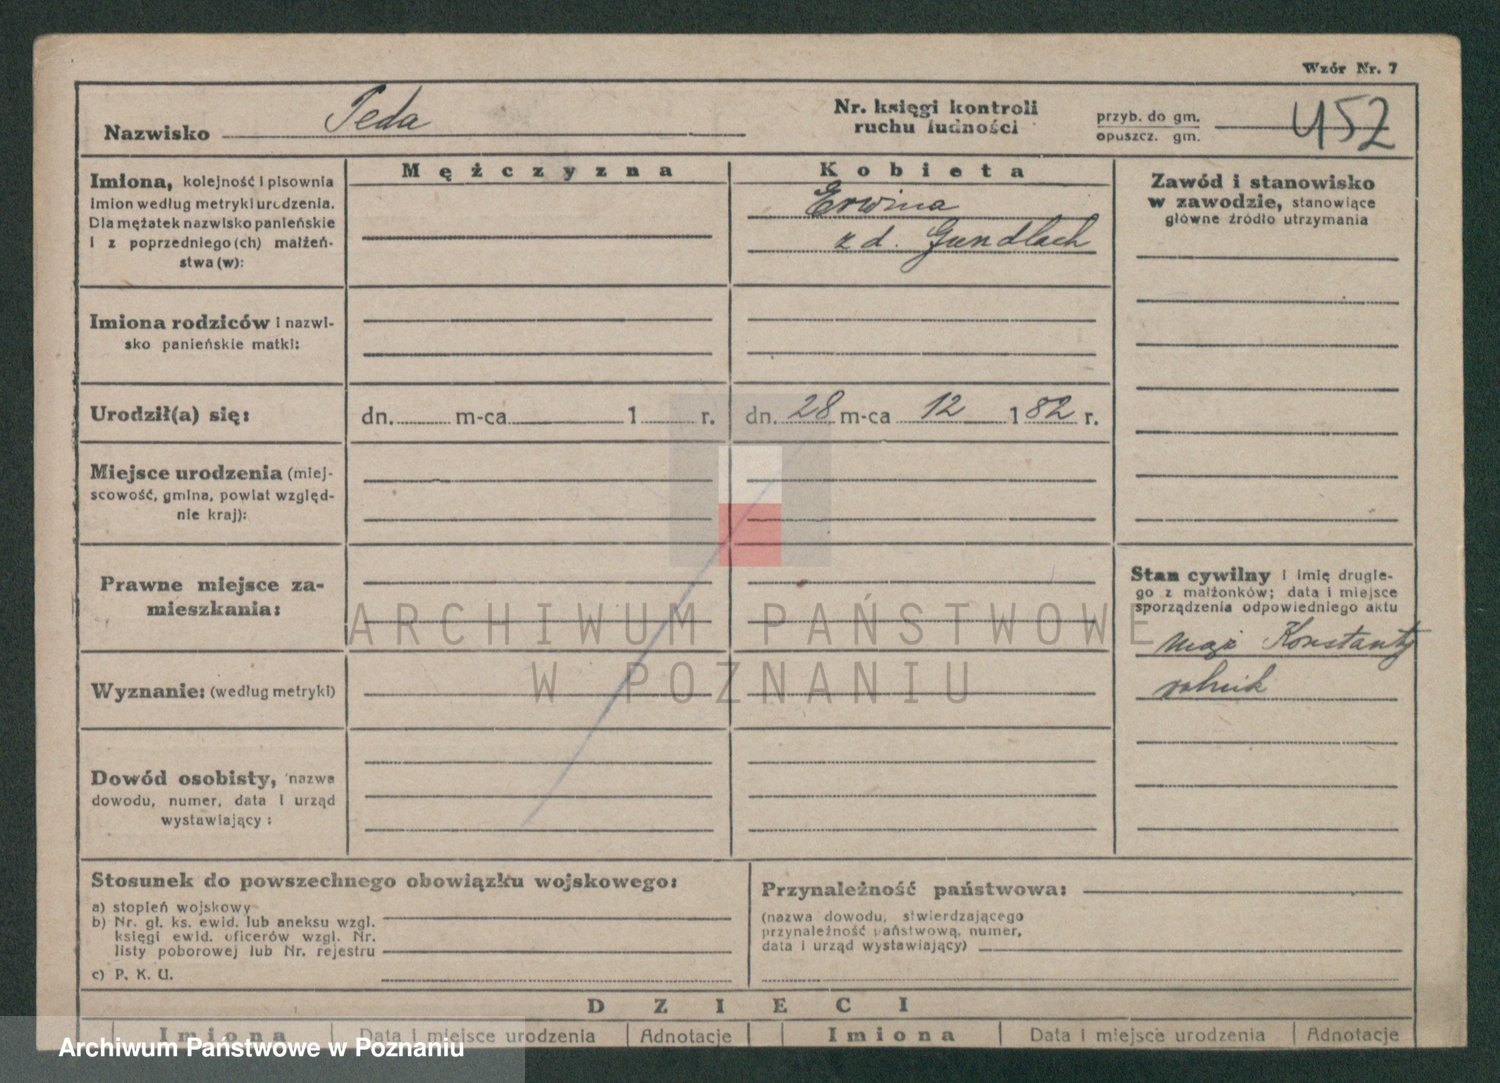 Wzór Nr. 7
Nazwisko Peda
Nr. księgi kontroli
ruchu ludności
przyb. do gm.
opuszcz. gm.
452
Mężczyzna
Kobieta
Imiona, kolejność i pisownia
imion według metryki urodzenia.
Dla mężatek nazwisko panieńskie
i z poprzedniego(ch) małżeń-
stwa(w):
Erwina
z d. Gundlach
Zawód i stanowisko
w zawodzie, stanowiące
główne źródło utrzymania
Imiona rodziców i nazwi-
sko panieńskie matki:
Urodził(a) się:
dn. m-ca 1 r.
dn. 28 m-ca 12 1 82 r.
Miejsce urodzenia (miej-
scowość, gmina, powiat względ-
nie kraj):
Prawne miejsce za-
mieszkania:
Stan cywilny i imię drugie-
go z małżonków; data i miejsce
sporządzenia odpowiedniego aktu
mąż Konstanty
rolnik
ARCHIWUM PAŃSTWOWE
W POZNANIU
Wyznanie: (według metryki)
Dowód osobisty, nazwa
dowodu, numer, data i urząd
wystawiający:
Stosunek do powszechnego obowiązku wojskowego:
a) stopień wojskowy
b) Nr. gł. ks. ewid. lub aneksu wzgl.
księgi ewid. oficerów wzgl. Nr.
listy poborowej lub Nr. rejestru
c) P. K. U.
Przynależność państwowa:
(nazwa dowodu, stwierdzającego
przynależność państwową, numer,
data i urząd wystawiający)
DZIECI
Imiona Data i miejsce urodzenia Adnotacje Imiona Data i miejsce urodzenia Adnotacje
Archiwum Państwowe w Poznaniu